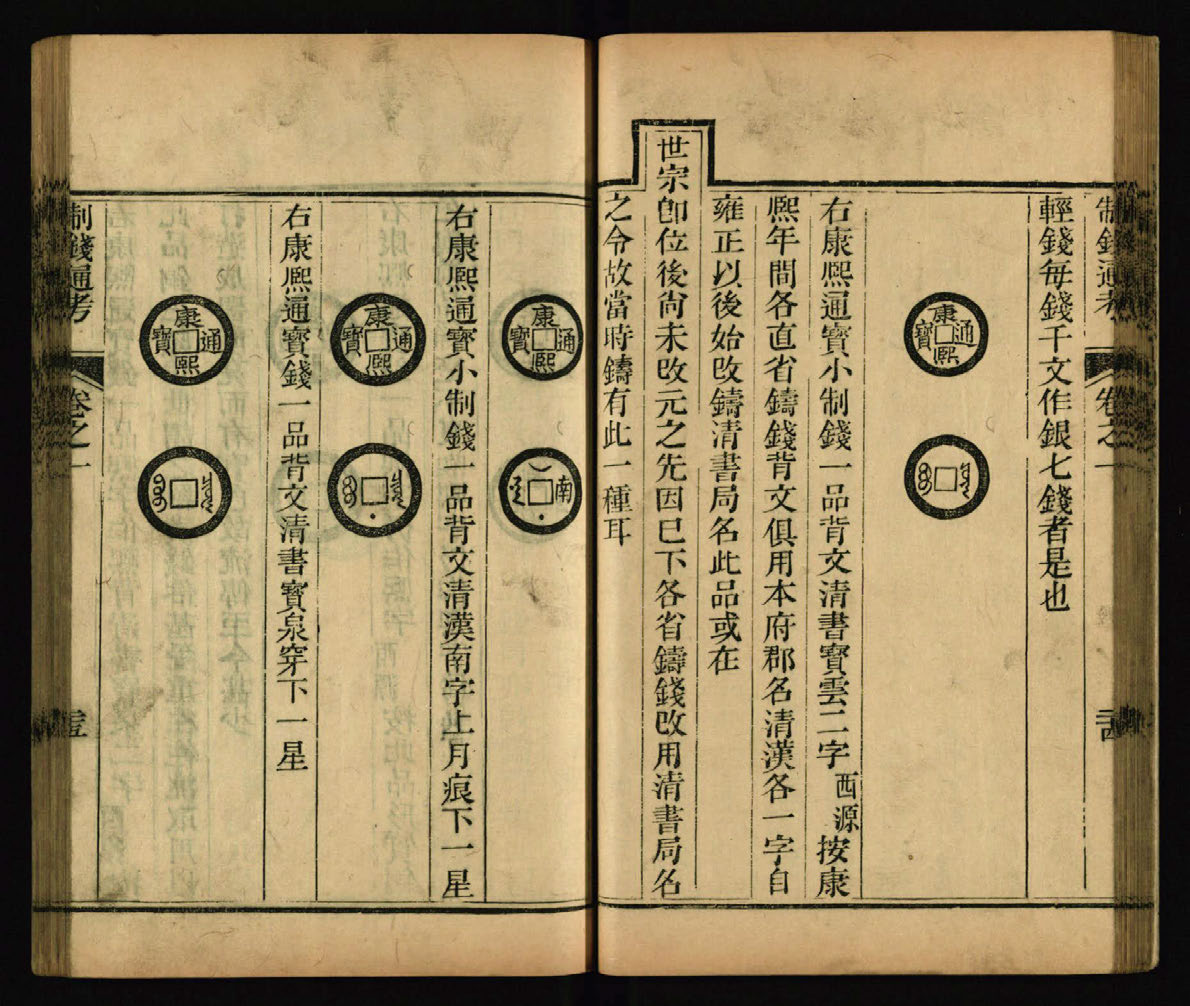 制錢通考
卷之一
輕錢每錢千文作銀七錢者是也
康熙通寶
右康熙通寶小制錢一品背文清書寶雲二字西源按康
熙年間各直省鑄錢背文俱用本府郡名清漢各一字自
雍正以後始改鑄清書局名此品或在
世宗卽位後尙未改元之先因已下各省鑄錢改用清書局名
之令故當時鑄有此一種耳
康熙通寶
南
右康熙通寶小制錢一品背文清漢南字上月痕下一星
康熙通寶
右康熙通寶錢一品背文清書寶泉穿下一星
康熙通寶
制錢通考
卷之一